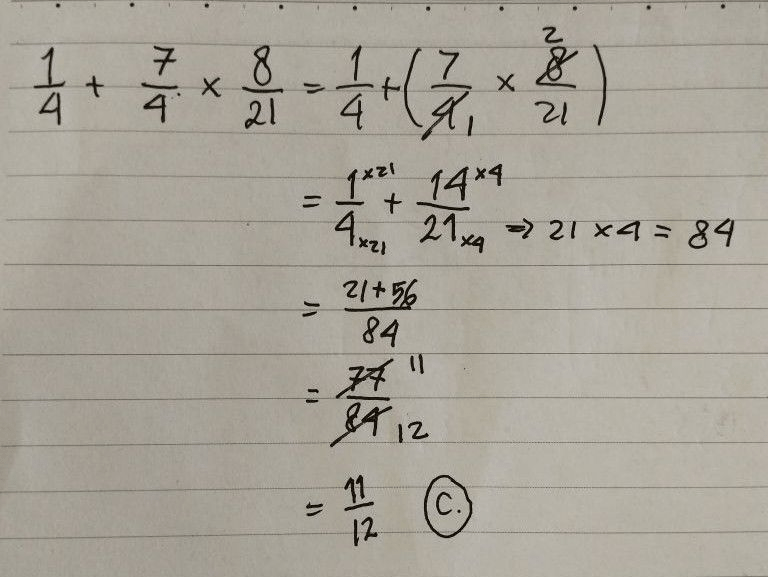 1/4 + 7/4 × 8/21 = 1/4 + (7/4 1 × 2 8/21)
= 1×21/4×21 + 14×4/21×4 ⇒ 21 × 4 = 84
= 21+56/84
= 77 11/84 12
= 11/12 C.